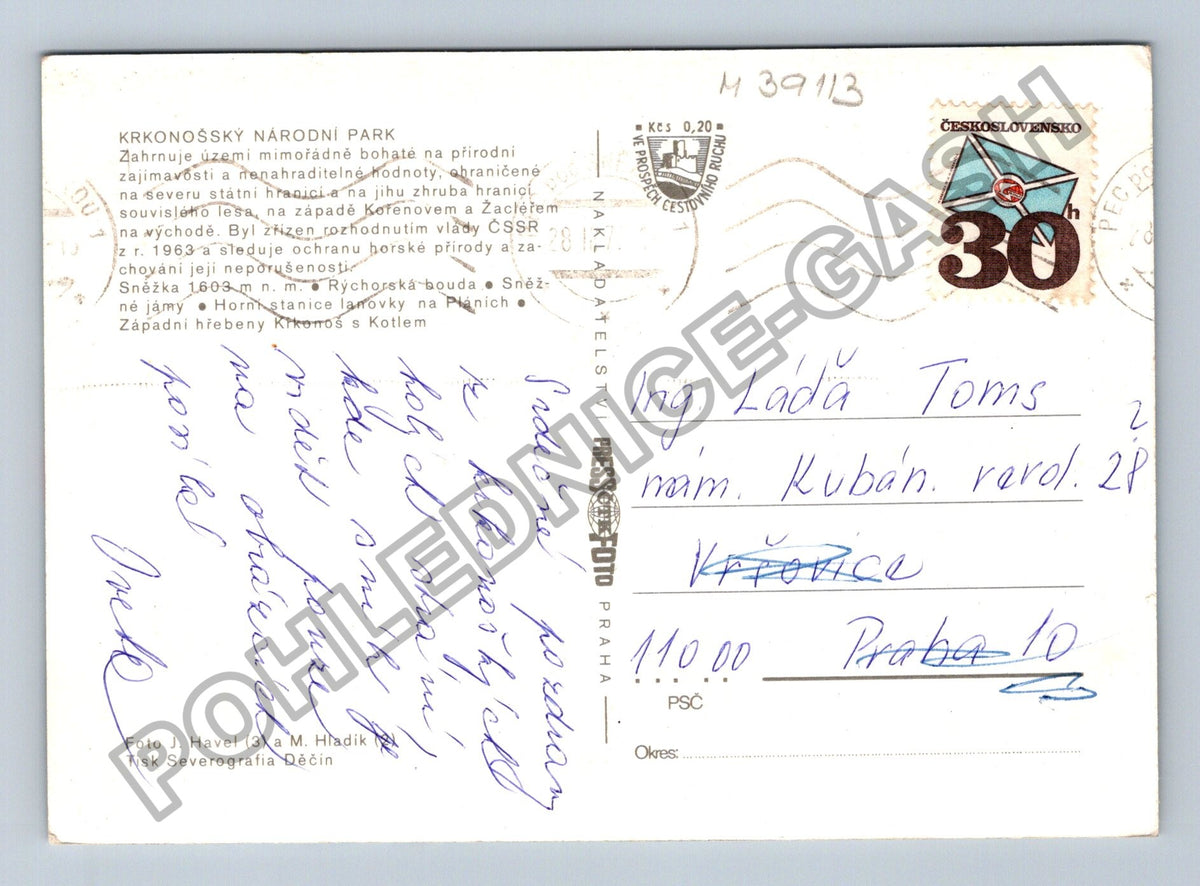 M 39113
KRKONOŠSKÝ NÁRODNÍ PARK
Zahrnuje území mimořádně bohaté na přírodní
zajímavosti a nenahraditelné hodnoty, ohraničené
na severu státní hranicí a na jihu zhruba hranicí
souvislého lesa, na západě Kořenovem a Žacléřem
na východě. Byl zřízen rozhodnutím vlády ČSSR
z r. 1963 a sleduje ochranu horské přírody a za-
chování její neporušenosti.
Sněžka 1603 m n. m. ● Rýchorská bouda ● Sněž-
né jámy ● Horní stanice lanovky na Pláních ●
Západní hřebeny Krkonoš s Kotlem
Srdečné pozdravy
z krkonošských
kde
pouze
na obrázcích
posílá
Foto J. Havel (3) a M. Hladík
Tisk Severografia Děčín
NAKLADATELSTVÍ PRESSFOTO PRAHA
ČTK
Kčs 0,20
VE PROSPĚCH CESTOVNÍHO RUCHU
ČESKOSLOVENSKO
30h
PEC POD
Ing Láďa Toms
nám. Kubán. revol. 28
?
Vršovice
11000 Praha 10
PSČ
Okres:
POHLEDNICE-GASH